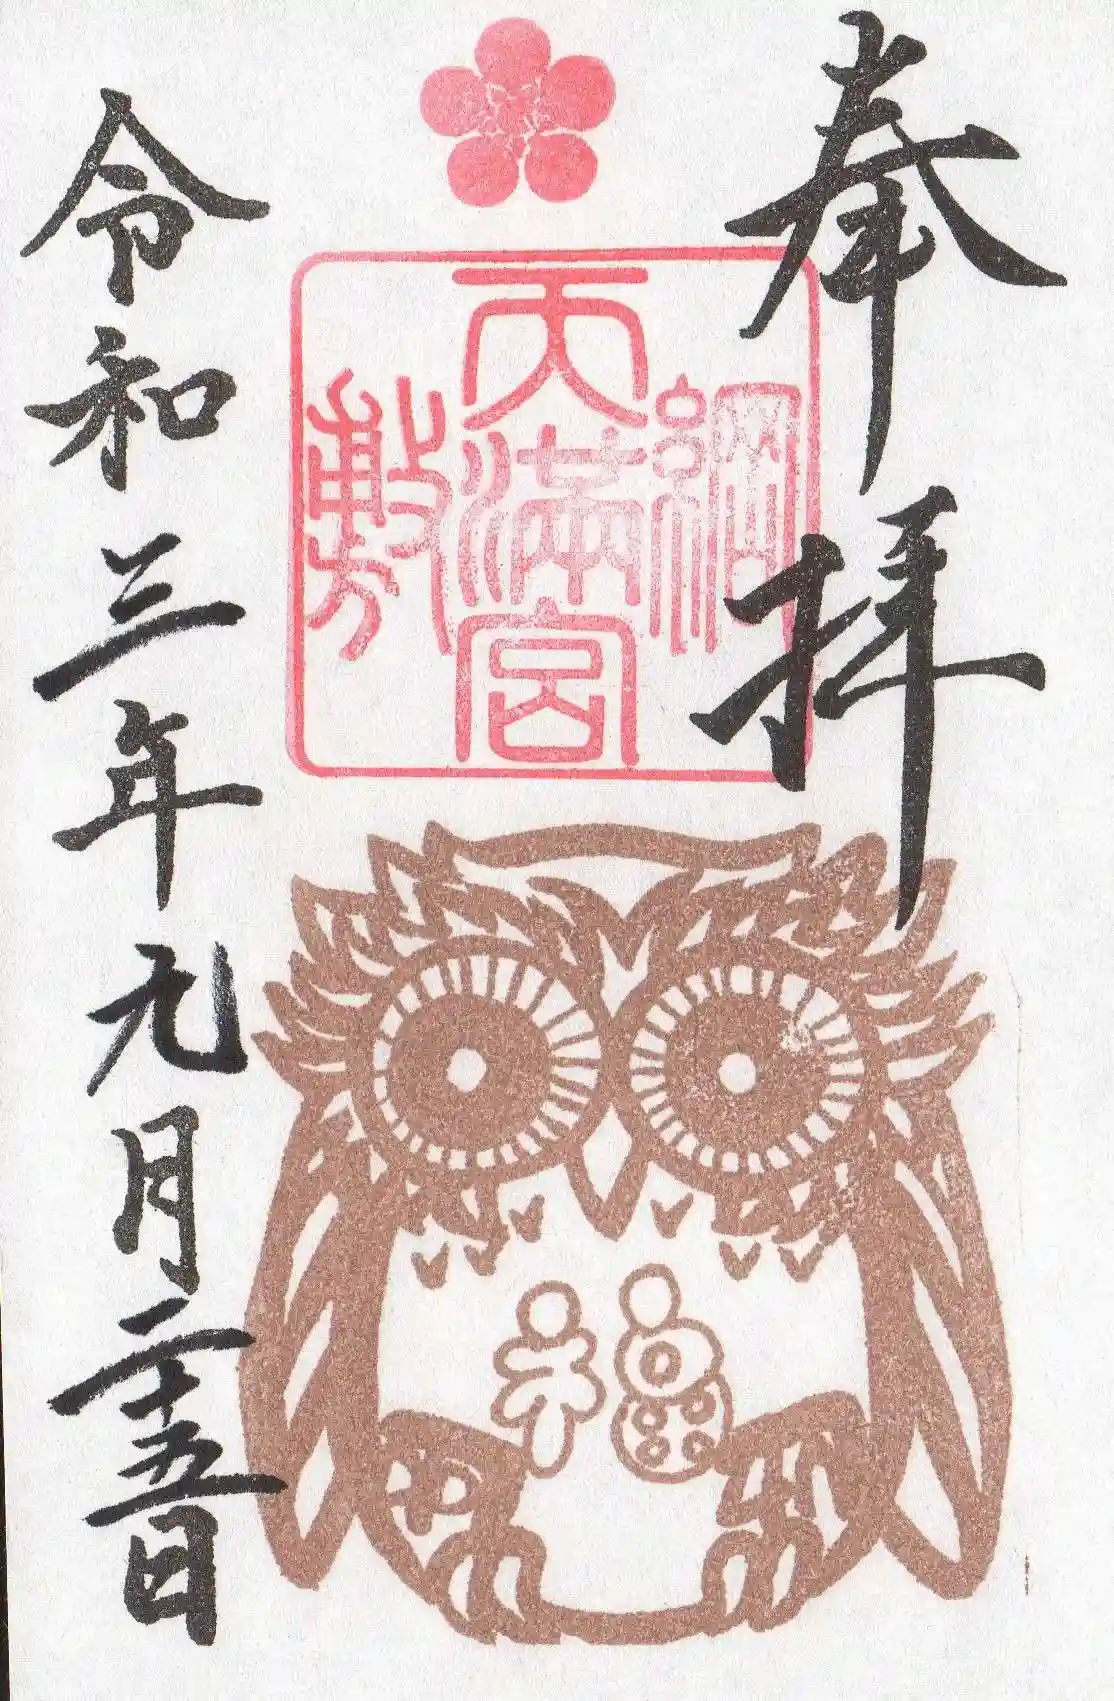 奉拝
綱
天満宮
敷
福
令和三年元月二十五日